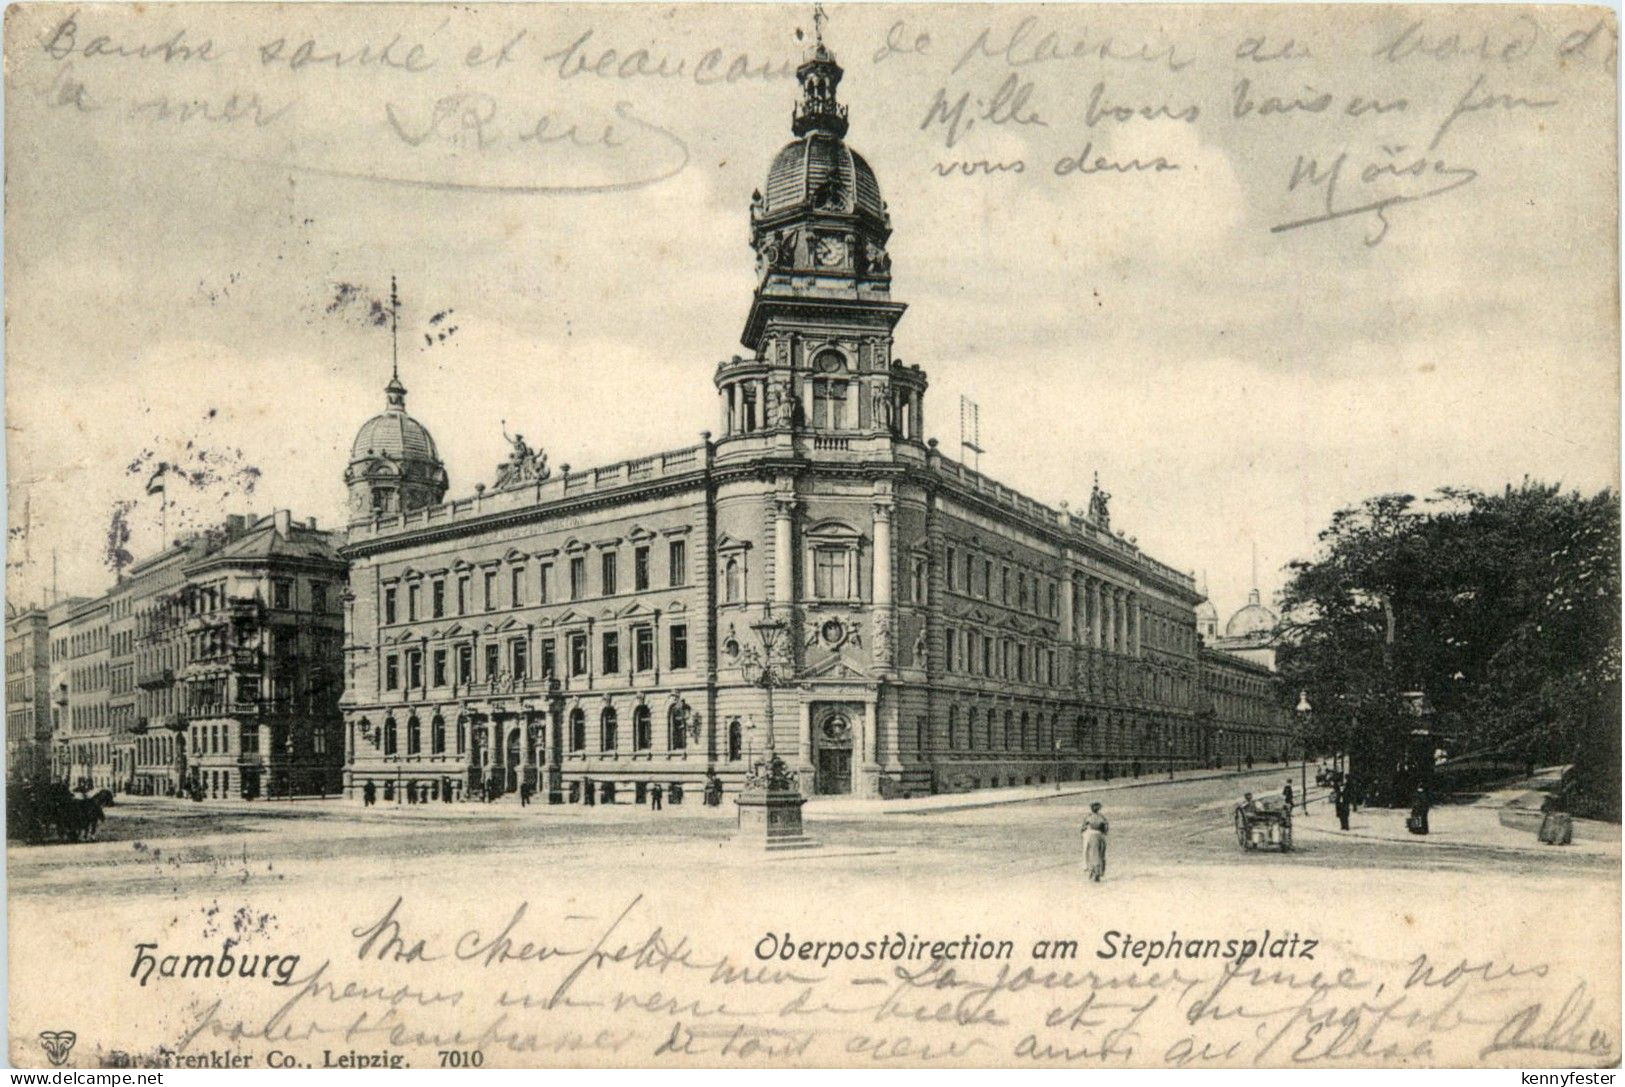 Bonne santé et beaucoup de plaisir au bord de
la mer René
Mille bons baisers pour
vous deux.
Moïse
Hamburg
Oberpostdirection am Stephansplatz
Ma chère petite mère – La journée finie, nous
prenons un verre de bière et j'en profite
pour t'embrasser de tout cœur ainsi qu'
Dr. Trenkler Co., Leipzig. 7010
kennyfester